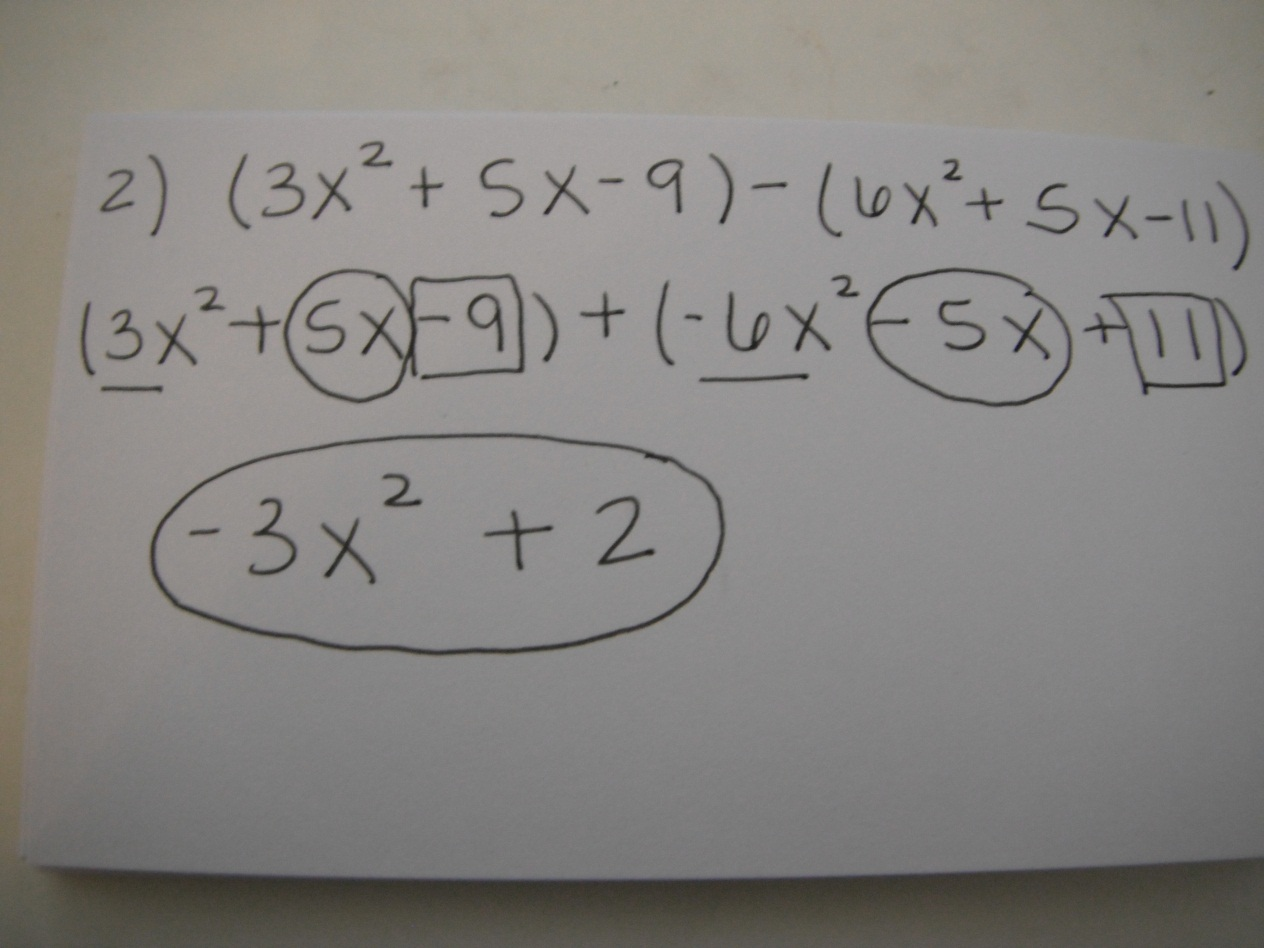 2) (3x² + 5x - 9) - (6x² + 5x - 11)
(3x² + 5x - 9) + (-6x² - 5x + 11)
-3x² + 2